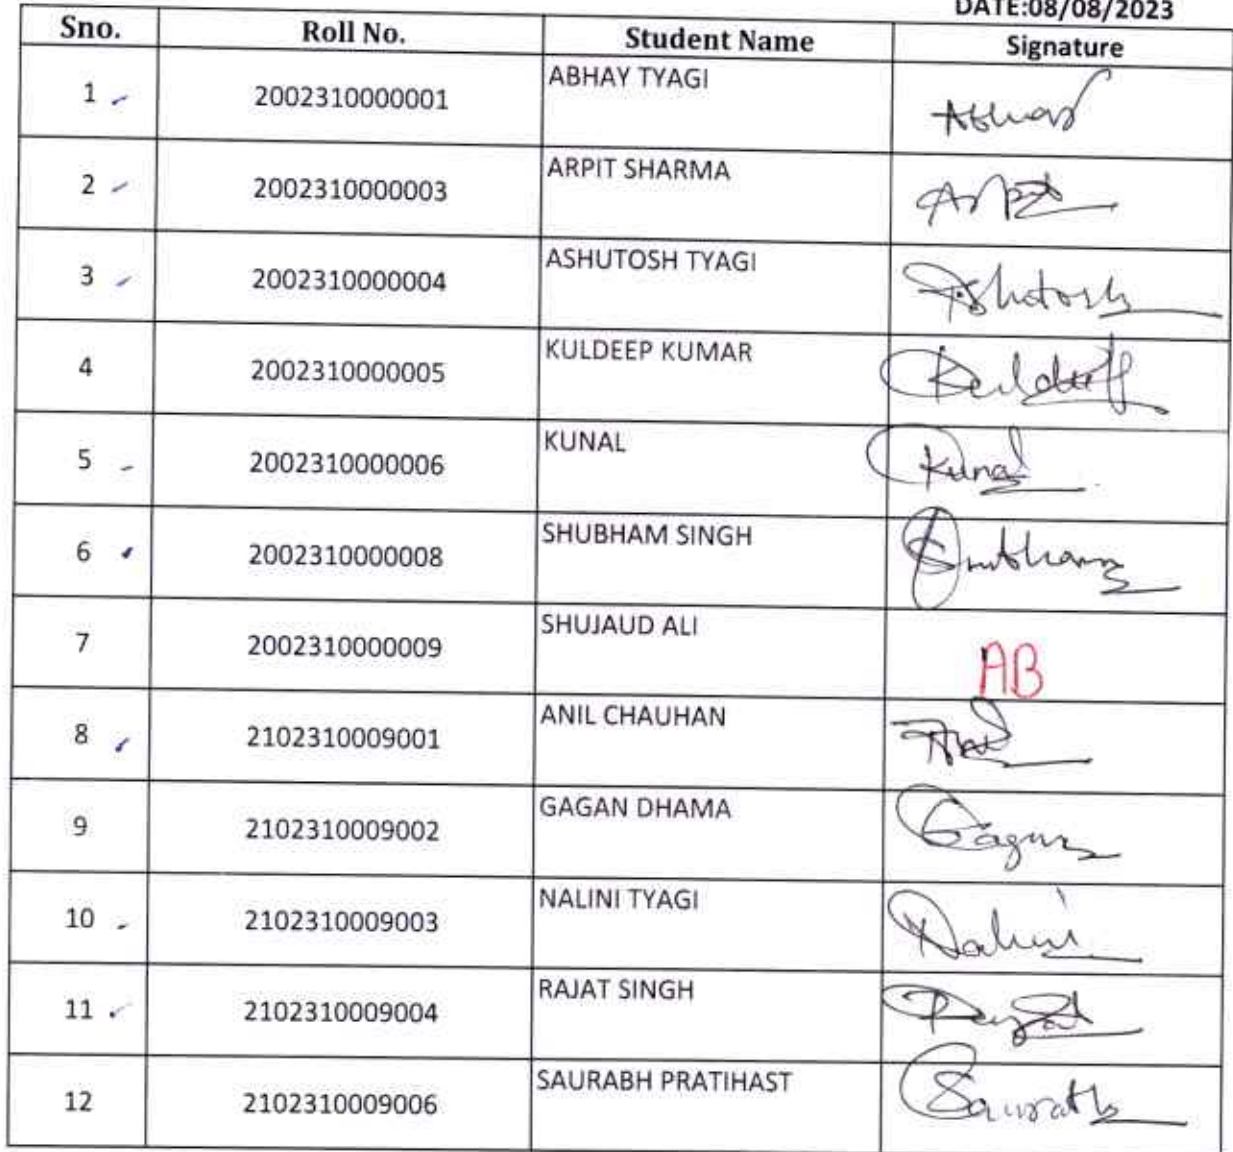 DATE:08/08/2023
Sno. Roll No. Student Name Signature
1 2002310000001 ABHAY TYAGI Abhay
2 2002310000003 ARPIT SHARMA Arpit
3 2002310000004 ASHUTOSH TYAGI Ashutosh
4 2002310000005 KULDEEP KUMAR Kuldeep
5 2002310000006 KUNAL Kunal
6 2002310000008 SHUBHAM SINGH Shubham
7 2002310000009 SHUJAUD ALI AB
8 2102310009001 ANIL CHAUHAN Anil
9 2102310009002 GAGAN DHAMA Gagan
10 2102310009003 NALINI TYAGI Nalini
11 2102310009004 RAJAT SINGH Rajat
12 2102310009006 SAURABH PRATIHAST Saurabh